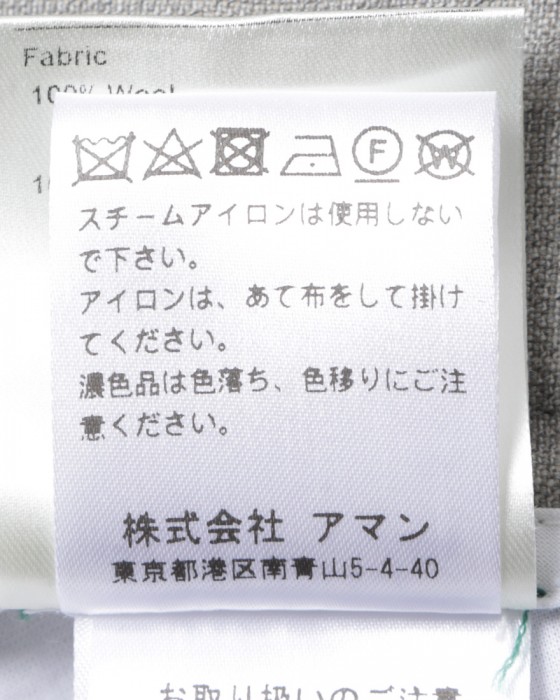 Fabric
100% Wool
スチームアイロンは使用しない
で下さい。
アイロンは、あて布をして掛け
てください。
濃色品は色落ち、色移りにご注
意ください。
株式会社 アマン
東京都港区南青山5-4-40
お取り扱いのご注意